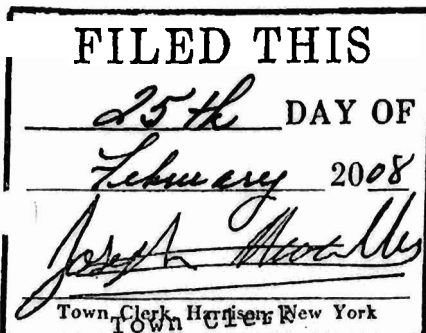 FILED THIS
25th DAY OF
February 2008
Joseph
Town Clerk, Harrison, New York
Town Clerk